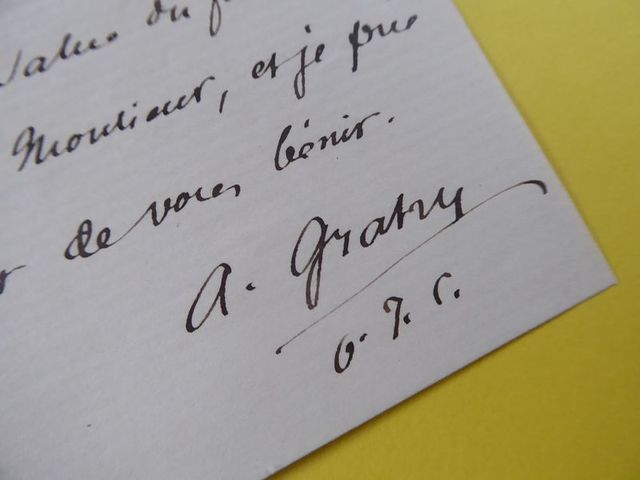 salue du
Monsieur, et je prie
de vous bénir.
A. Gratry
o. J. C.